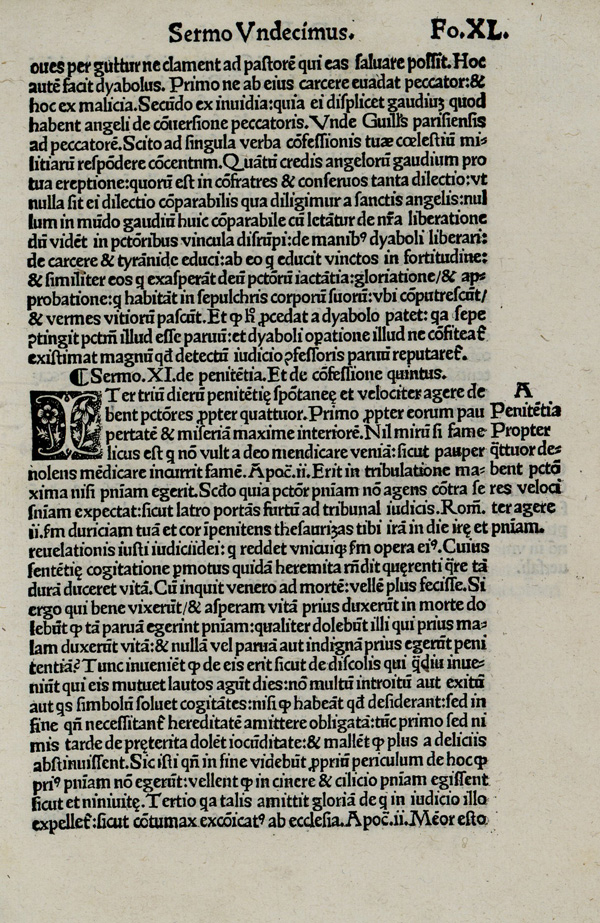 Sermo Vndecimus. Fo.XL.
oues per guttur ne clament ad pastorē qui eas saluare possit. Hoc
autē facit dyabolus. Primo ne ab eius carcere euadat peccator:&
hoc ex malicia. Secūdo ex inuidia:quia ei displicet gaudiuꝫ quod
habent angeli de cōuersione peccatoris. Vnde Guills parisiensis
ad peccatorē. Scito ad singula verba cōfessionis tuæ cœlestiū mi⸗
litiarū respōdere cōcentum. Quātū credis angelorū gaudium pro
tua ereptione:quorū est in cōfratres & conseruos tanta dilectio:vt
nulla sit ei dilectio cōparabilis qua diligimur a sanctis angelis:nul
lum in mūdo gaudiū huic cōparabile cū letātur de nr̄a liberatione
dū vidēt in pctōribus vincula disrūpi:de manibꝰ dyaboli liberari:
de carcere & tyrānide educi:ab eo q educit vinctos in fortitudine:
& similiter eos q exasperāt deū pctōrū iactātia:gloriatione/& ap⸗
probatione:q habitāt in sepulchris corporū suorū:vbi cōputrescūt/
& vermes vitiorū pascūt. Et ꝙ h̄ ꝓcedat a dyabolo patet: qa sepe
ꝯtingit pctm̄ illud esse paruū:et dyaboli oꝑatione illud ne cōfiteat᷑
existimat magnū qd̄ detectū iudicio ꝯfessoris paruū reputaret᷑.
¶ Sermo.XI.de penitētia. Et de cōfessione quintus.
ITer triū dierū penitētię spōtaneę et velociter agere de
bent pctōres ꝓpter quattuor. Primo ꝓpter eorum pau
pertatē & miseriā maxime interiorē. Nil mirū si fame
licus est q nō vult a deo mendicare veniā: sicut pauper
nolens mēdicare incurrit famē. Apoc̄.ii. Erit in tribulatione ma⸗
xima nisi pn̄iam egerit. Scdo quia pctōr pn̄iam nō agens cōtra se
sn̄iam expectat:sicut latro portās furtū ad tribunal iudicis. Rom̄.
ii. fm duriciam tuā et cor īpenitens thesaurizas tibi irā in die irę et
reuelationis iusti iudicii dei: q reddet vnicuiqꝫ fm opera eiꝰ. Cuius
sentētię cogitatione ꝓmotus quidā heremita rn̄dit quęrenti q̄re tā
durā duceret vitā. Cū inquit venero ad mortē:vellē plus fecisse. Si
ergo qui bene vixerūt/& asperam vitā prius duxerūt in morte do
lebūt ꝙ tā paruā egerint pn̄iam:qualiter dolebūt illi qui prius ma⸗
lam duxerūt vitā:& nullā vel paruā aut indignā prius egerūt peni
tentiā? Tunc inueniēt ꝙ de eis erit sicut de discolis qui q̄diu inue⸗
niūt qui eis mutuet lautos agūt dies:no multū introitū aut exitū
aut qs simbolū soluet cogitātes:nisi ꝙ habeāt qd̄ desiderant:sed in
fine qn̄ necessitant᷑ hereditatē amittere obligatā:tūc primo sed ni
mis tarde de pręterita dolēt iocūditate:& mallēt ꝙ plus a deliciis
abstinuissent. Sic isti qn̄ in fine videbūt ꝓpriū periculum de hoc ꝙ
priꝰ pn̄iam nō egerūt:vellent ꝙ in cinere & cilicio pn̄iam egissent
sicut et niniuitę. Tertio qa talis amittit gloriā de q in iudicio illo
expellet᷑:sicut cōtumax excōicatꝰ ab ecclesia. Apoc̄.ii. Mēor esto
A
Penitētia
Propter
q̄ttuor de⸗
bent pctō
res veloci
ter agere
pniam.